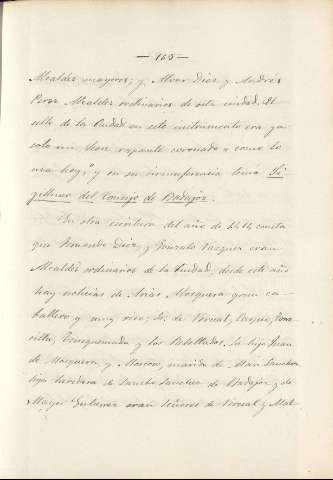 — 165 —
Alcaldes mayores; y Alvar Diaz y Andrés
Perez Alcaldes ordinarios de esta ciudad. El
sello de la Ciudad en este instrumento era ya
solo un leon rapante coronado "como lo
usa hoy," y en su circunferencia tenía Si-
gillum del Concejo de Badajoz.
En otra escritura del año de 1414 consta
que Fernando Diaz, y Gonzalo Vazquez eran
Alcaldes ordinarios de la Ciudad; desde este año
hay noticias de Arias Mosquera gran ca-
ballero y muy rico; Sr. de
y los hijo Juan
de Mosquera y Moscoso, marido de
hija heredera de Sancho Sanchez de Badajoz y de
Mayor Gutierrez eran Señores de